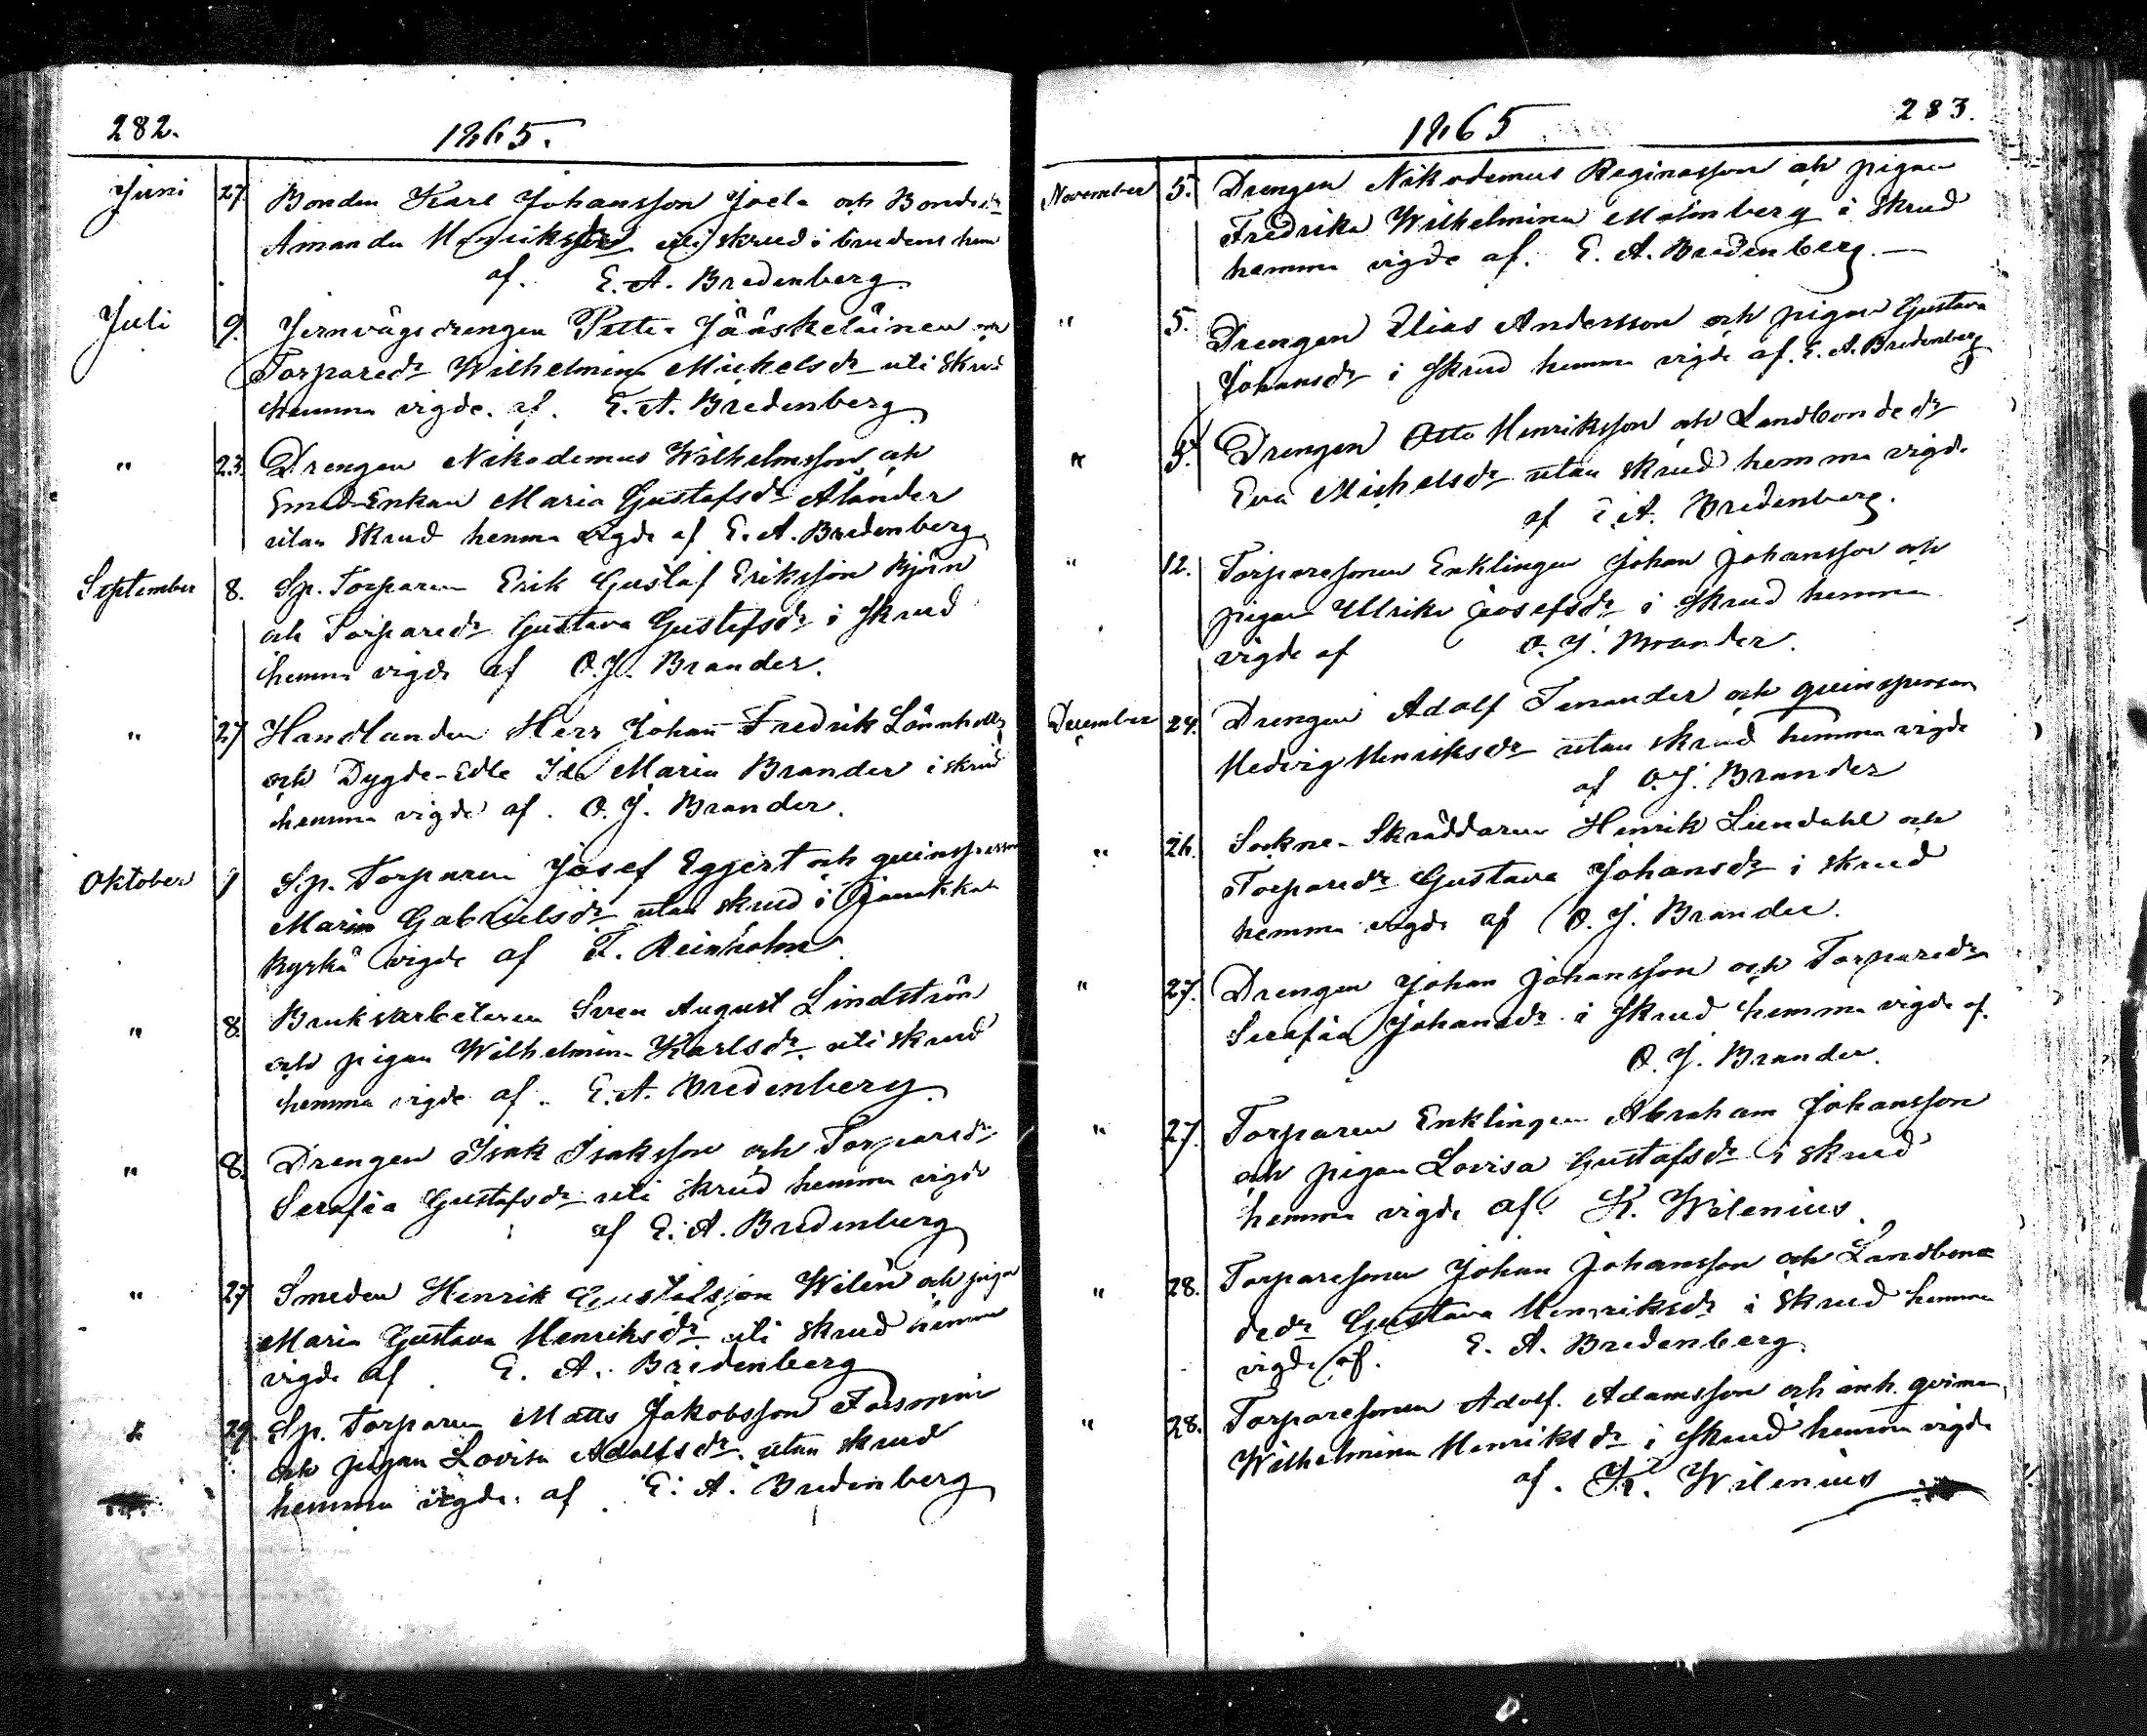 282.
1865.
Juni 27. Bonden Karl Johansson Joela och Bondedr
Amanda Henriksdr uti skrud i brudens hem
af. E. A. Bredenberg
Juli 9. Jernvägsdrengen Petter Jääskeläinen och
Torparedr Wilhelmina Mickelsdr uti skrud
hemma vigde. af. E. A. Bredenberg
" 23. Drengen Nikodemus Wilhelmsson och
Smed-Enkan Maria Gustafsdr Ålander
utan skrud hemma vigde af E. A. Bredenberg
September 8. Sp. Torparen Erik Gustaf Eriksson Björn
och Torparedr Gustava Gustafsdr i skrud
hemma vigde af O. J. Brander.
" 27 Handlanden Herr Johan Fredrik Lönnholtz
och Dygde-Edle Ida Maria Brander i skrud
hemma vigde af. O. J. Brander.
Oktober 1 Sp. Torparen Josef Eggert och qvinsperson
Maria Gabrielsdr utan skrud i Janakkala
kyrka vigde af T. Reinholm.
" 8. Bruksarbetaren Sven August Lindström
och pigan Wilhelmina Karlsdr. uti skrud
hemma vigde af. E. A. Bredenberg.
" 8. Drengen Isak Isaksson och Torparedr
Serafia Gustafsdr uti skrud hemma vigde
af E. A. Bredenberg
" 27 Smeden Henrik Gustafsson Wilén och pigan
Maria Gustava Henriksdr uti skrud hemma
vigde af E. A. Bredenberg
" 29. Sp. Torparen Matts Jakobsson Forsman
och pigan Lovisa Adolfsdr. utan skrud
hemma vigde. af E. A. Bredenberg
283.
1865
November 5. Drengen Nikodemus Reginasson och pigan
Fredrika Wilhelmina Malmberg i skrud
hemma vigde af. E. A. Bredenberg. —
" 5. Drengen Elias Andersson och pigan Gustava
Johansdr i skrud hemma vigde af. E. A. Bredenberg
" 5. Drengen Otto Henriksson och Landbondedr
Eva Michelsdr utan skrud hemma vigde
af E. A. Bredenberg.
" 12. Torparesonen Enklingen Johan Johansson och
pigan Ullrika Josefsdr i skrud hemma
vigde af O. J. Brander.
December 24. Drengen Adolf Tenander och qvinsperson
Hedvig Henriksdr utan skrud hemma vigde
af O. J. Brander
" 26. Sockne-Skräddaren Henrik Lundahl och
Torparedr Gustava Johansdr i skrud
hemma vigde af O. J. Brander.
" 27. Drengen Johan Johansson och Torparedr
Serafia Johansdr i skrud hemma vigde af.
O. J. Brander.
" 27. Torparen Enklingen Abraham Johansson
och pigan Lovisa Gustafsdr i skrud
hemma vigde af. K. Wilenius.
" 28. Torparesonen Johan Johansson och Landbon
dedr Gustava Henriksdr i skrud hemma
vigde af. E. A. Bredenberg.
" 28. Torparesonen Adolf. Adamsson och inh. qvinan
Wilhelmina Henriksdr i skrud hemma vigde
af. K. Wilenius